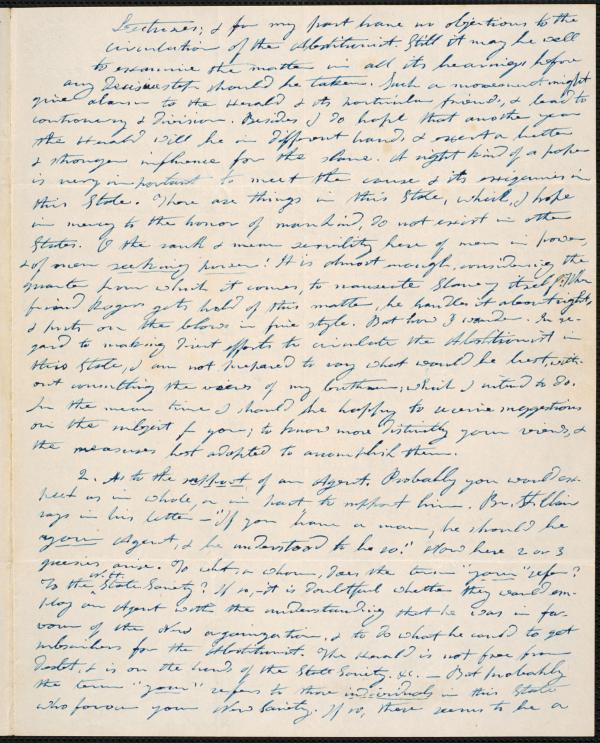 Lectures; & for my part have no objections to the
circulation of the Abolitionist. Still it may be well
to examine the matter in all its bearings before
any decisive step should be taken. Such a movement might
give alarm to the Herald & its particular friends, & lead to
controversy & division. Besides I do hope that another year
the Herald will be in different hands, & exert a better
& stronger influence for the slave. A right kind of a paper
is very important to meet the cause & its exigencies in
this State. There are things in this State, which, I hope
in mercy to the honor of mankind, do not exist in other
States. O the rank & mean servility here of men in power,
& of men seeking power! It is almost enough, considering the
quarter from which it comes, to nauseate Slavery itself. When
friend Rogers gets hold of this matter, he handles it about right,
& puts on the blows in fine style. But how I wander. In re-
gard to making direct efforts to circulate the Abolitionist in
this State, I am not prepared to say what would be best, with-
out consulting the views of my brethren; which I intend to do.
In the mean time I should be happy to receive suggestions
on the subject fr you; to know more distinctly your views, &
the measures best adapted to accomplish them.
2. As to the support of an Agent. Probably you would ex-
pect us in whole, or in part to support him. Br.
says in his letter — "If you have a man, he should be
your Agent, & be understood to be so." Now here 2 or 3
queries arise. To what, or whom, does the term "your" refer?
To the N.H. State Society? If so, it is doubtful whether they would em-
ploy an Agent with the understanding that he was in fa-
vour of the New organization, & to do what he could to get
subscribers for the Abolitionist. The Herald is not free from
Debt, & is on the hands of the State Society. &c. — But probably
the term "your" refers to those individuals in this State
who favour your New Society. If so, there seems to be a